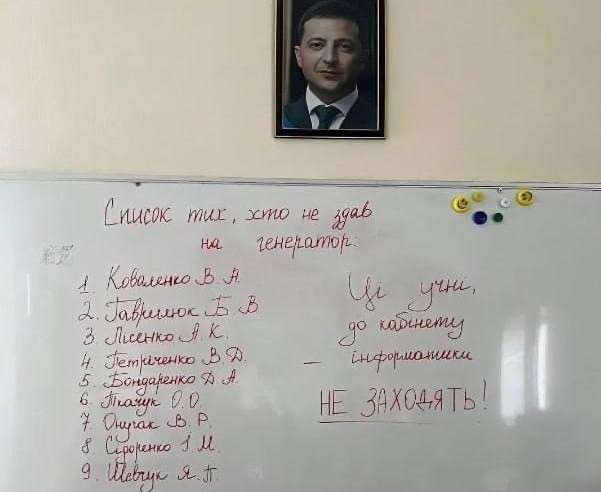 Список тих, хто не здав
на генератор:
1. Коваленко В. А.
2. Гаврилюк Б. В
3. Лісенко А. К.
4. Петріченко В. Д.
5. Бондаренко Д. А.
6. Ткачук О. О.
7. Онучак В. Р.
8. Сідоренко І. М.
9. Шевчук Я. П.
Ці учні,
до кабінету
– інформатики
НЕ ЗАХОДЯТЬ!